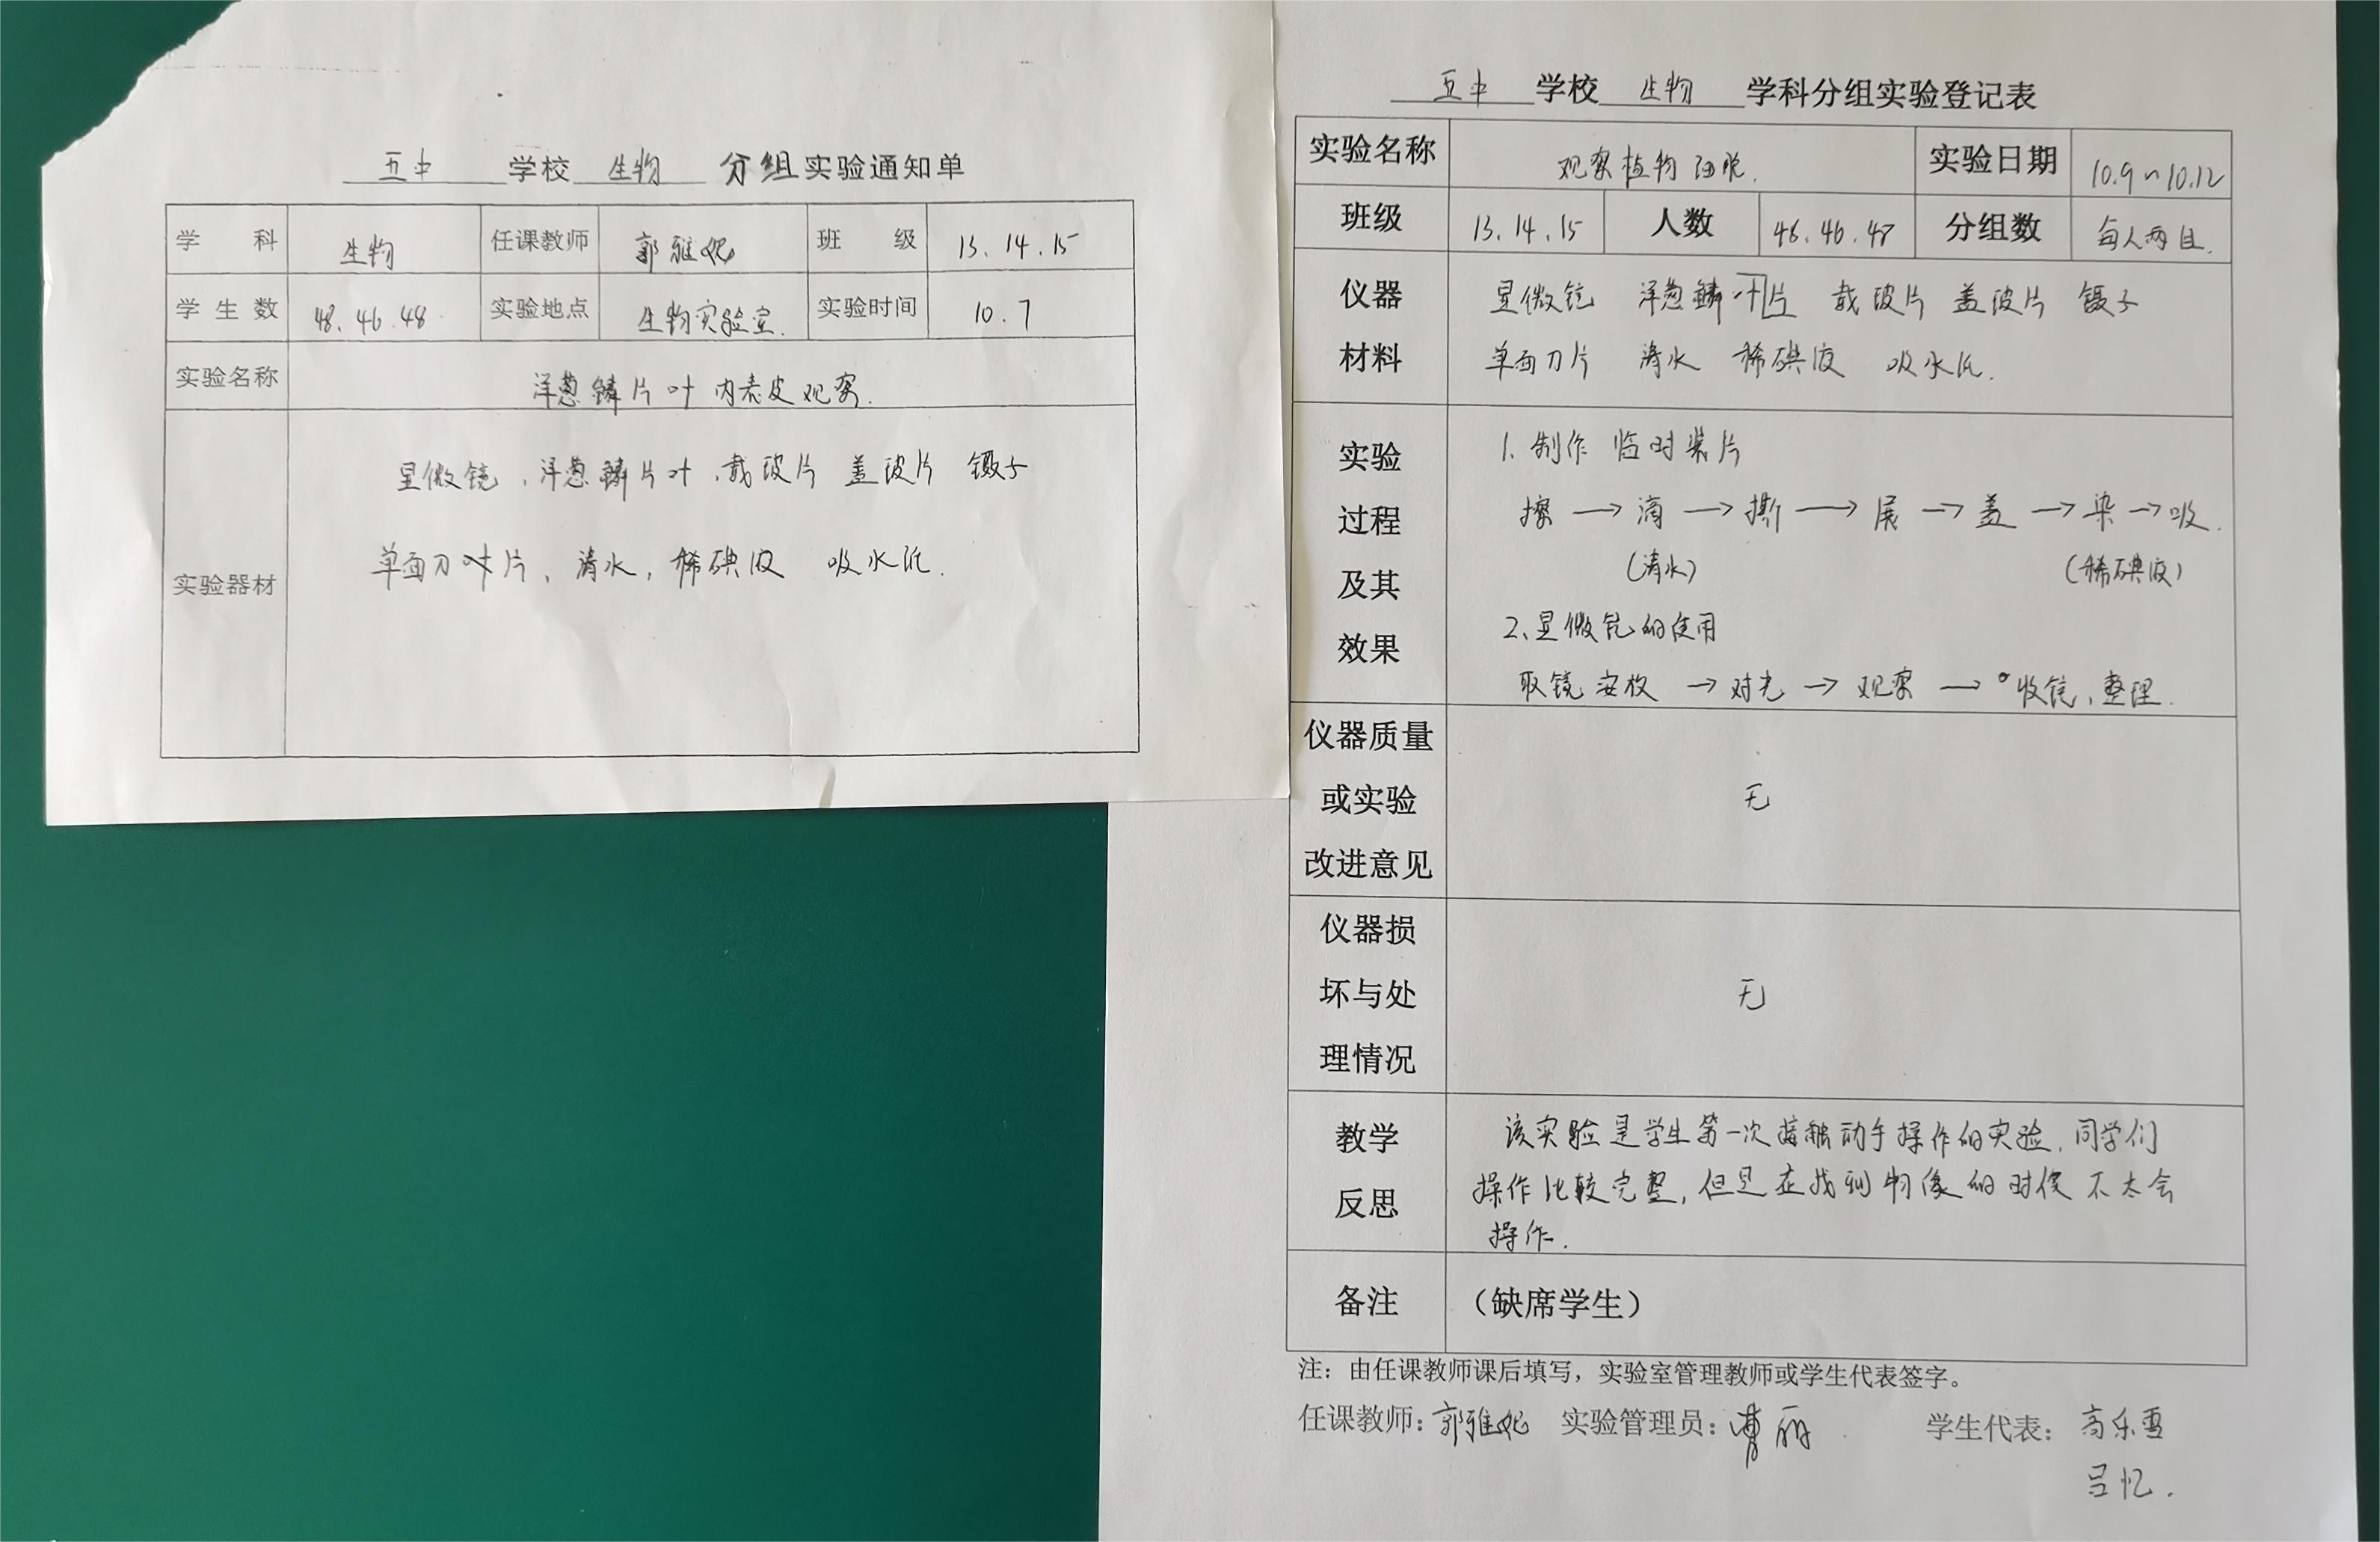 五中 学校 生物 分组实验通知单
学科 生物 任课教师 郭雅妮 班级 13、14、15
学生数 48、46、48 实验地点 生物实验室. 实验时间 10.7
实验名称 洋葱鳞片叶内表皮观察.
实验器材
显微镜、洋葱鳞片叶、载玻片 盖玻片 镊子
单面刀片、清水, 稀碘液 吸水纸.
五中 学校 生物 学科分组实验登记表
实验名称 观察植物细胞. 实验日期 10.9~10.12
班级 13.14.15 人数 46.46.48 分组数 每人两组.
仪器材料
显微镜 洋葱鳞叶片 载玻片 盖玻片 镊子
单面刀片 清水 稀碘液 吸水纸.
实验过程及其效果
1、制作临时装片
擦→滴→撕→展→盖→染→吸.
(清水) (稀碘液)
2、显微镜的使用
取镜安放→对光→观察→收镜、整理.
仪器质量或实验改进意见 无
仪器损坏与处理情况 无
教学反思
该实验是学生第一次接触动手操作的实验, 同学们
操作比较完整, 但是在找到物像的时候不太会
操作.
备注 (缺席学生)
注：由任课教师课后填写，实验室管理教师或学生代表签字。
任课教师：郭雅妮 实验管理员：曹丽 学生代表：高乐雪
吕忆.